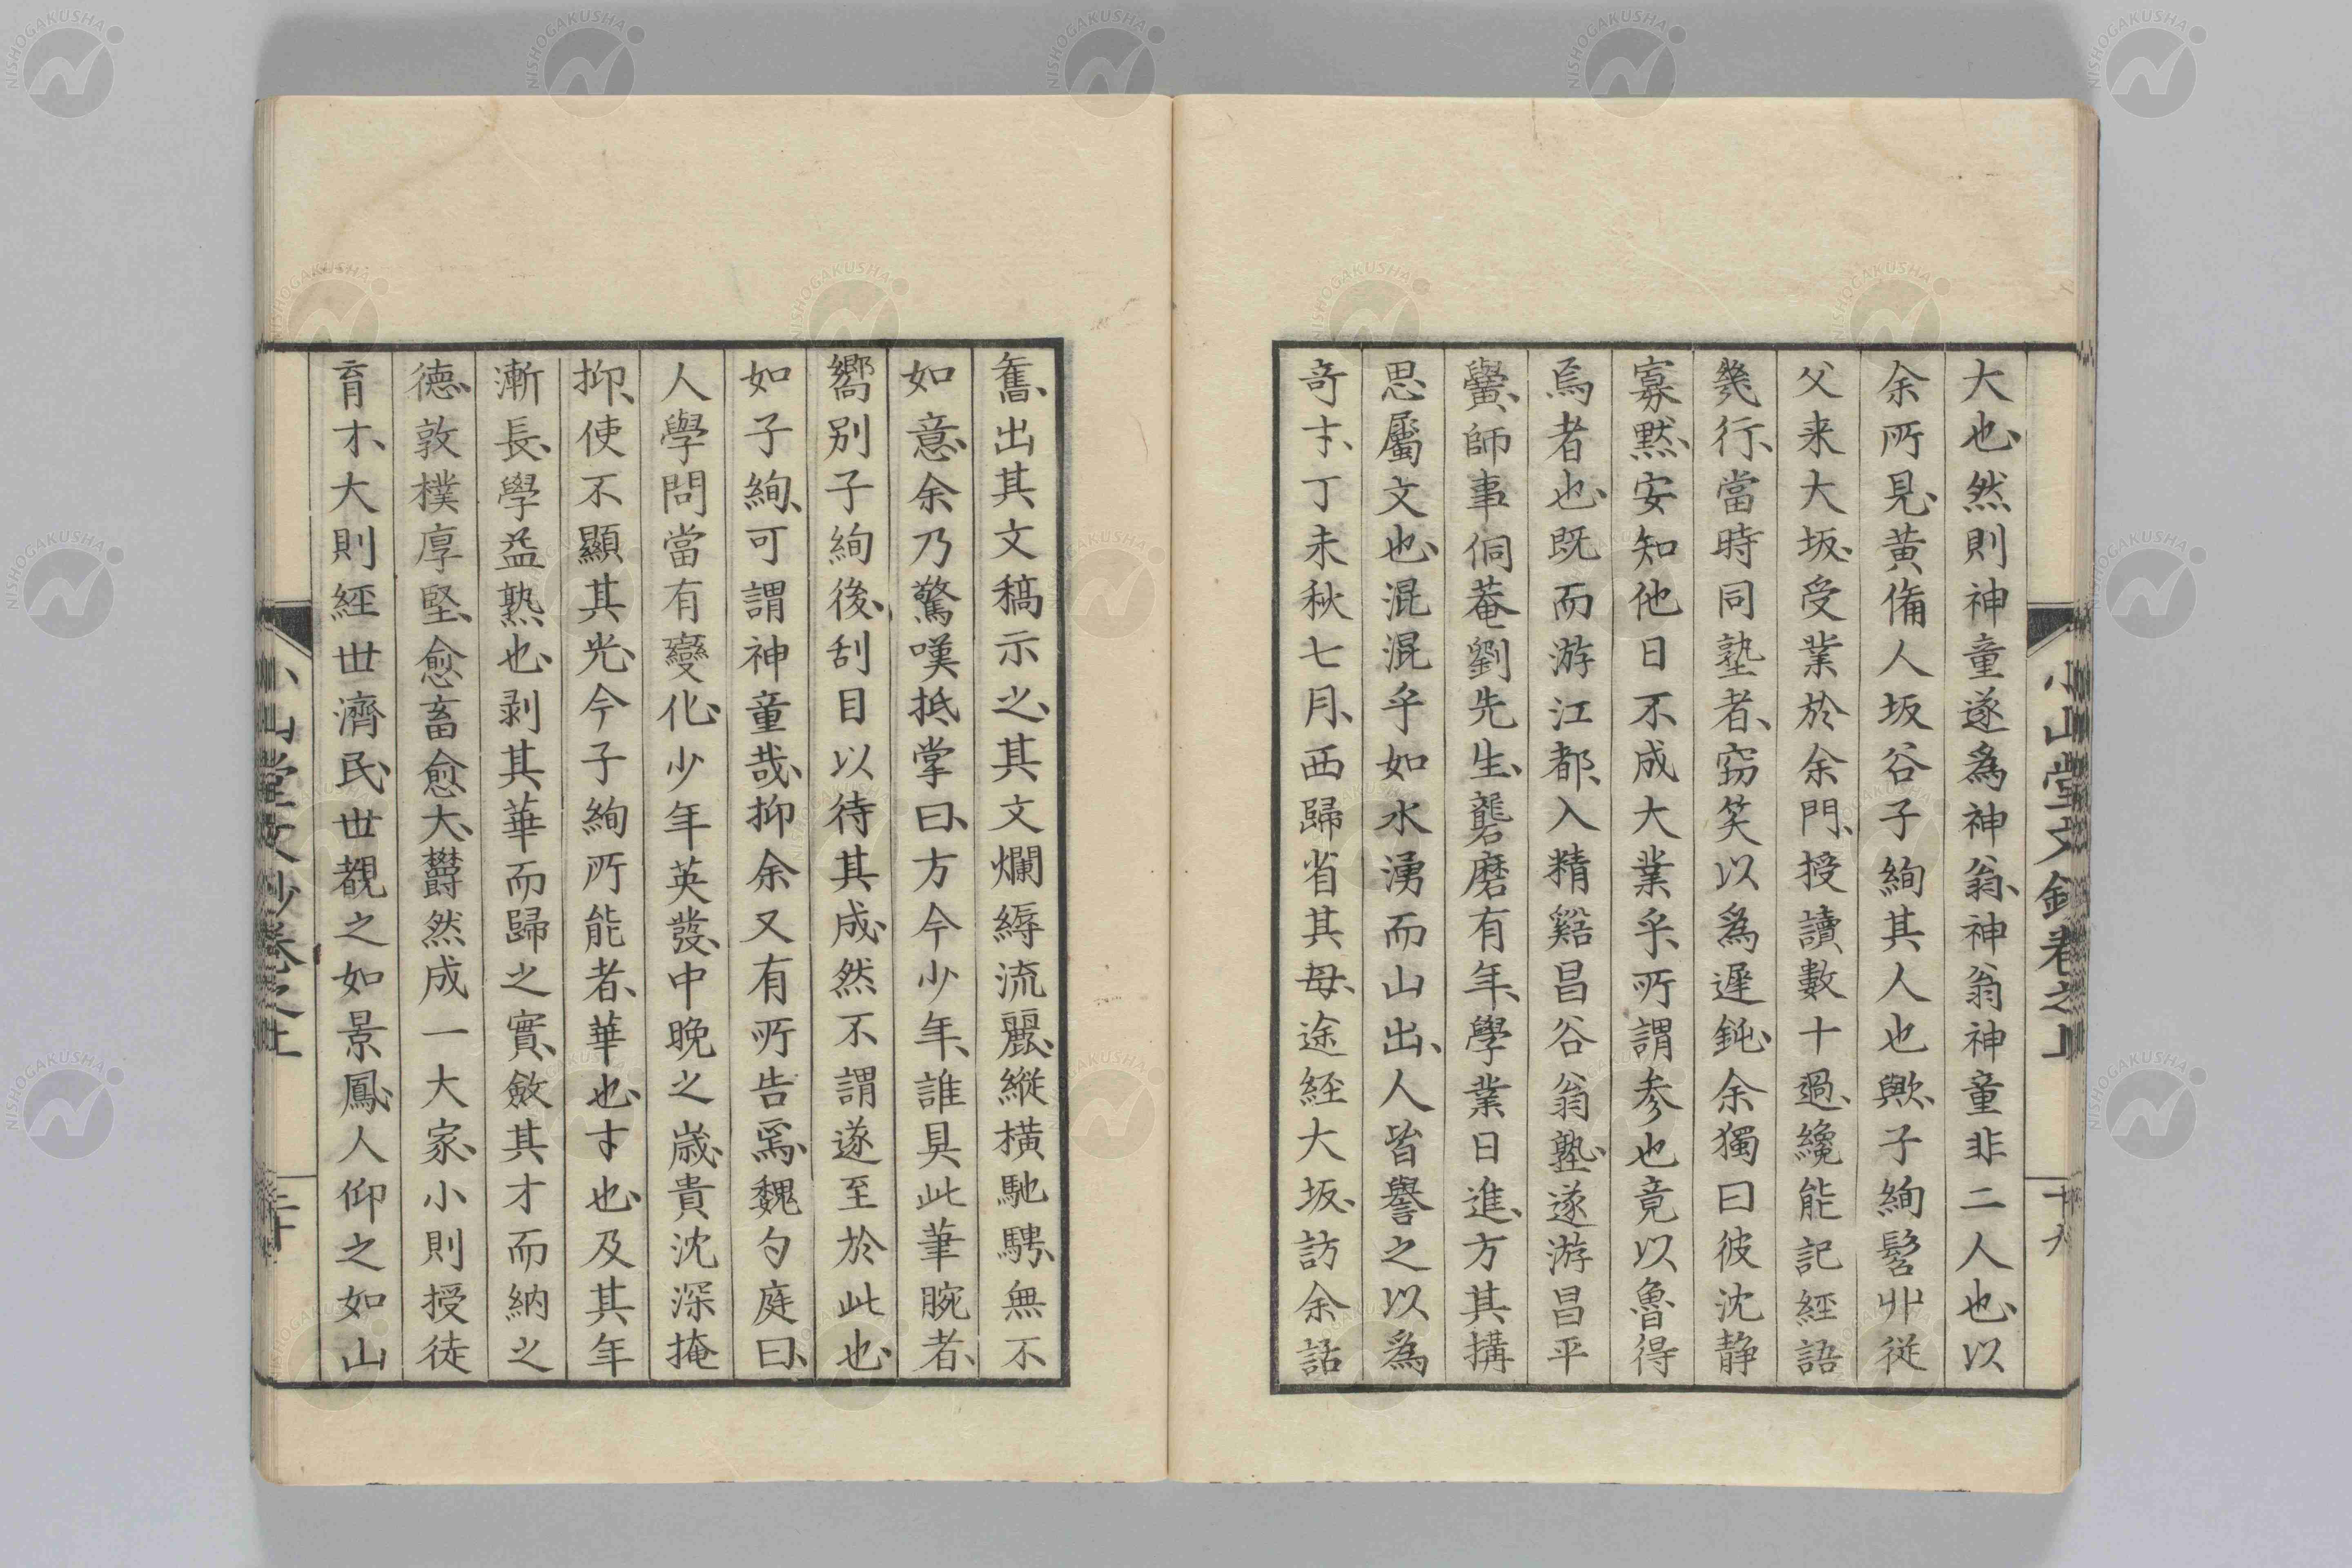 大也、然則神童遂為神翁、神翁神童非二人也、以
余所見、黄備人坂谷子絢其人也歟、子絢髫丱従
父来大坂、受業於余門、授讀數十過、纔能記經語
幾行、當時同塾者、窃笑以為遲鈍、余獨曰彼沈静
寡黙、安知他日不成大業乎、所謂参也竟以魯得
焉者也、既而游江都、入精谿昌谷翁塾、遂游昌平
黌、師事侗菴劉先生、礱磨有年、學業日進、方其搆
思屬文也、混混乎如水湧而山出、人皆譽之以為
奇才、丁未秋七月、西歸省其母、途経大坂、訪余話
小山堂文鈔巻之上
十九
舊、出其文稿示之、其文爛縟流麗、縦横馳騁、無不
如意、余乃驚嘆抵掌曰、方今少年、誰具此筆腕者、
嚮別子絢後、刮目以待其成、然不謂遂至於此也、
如子絢、可謂神童哉、抑余又有所告焉、魏勺庭曰、
人學問當有變化、少年英發、中晩之歳、貴沈深掩
抑、使不顯其光、今子絢所能者、華也、才也、及其年
漸長、學益熟也、剥其華而歸之實、斂其才而納之
德、敦樸厚堅、愈畜愈大、欝然成一大家、小則授徒
育才、大則經世濟民、世覩之如景鳳、人仰之如山
小山堂文鈔巻之上
二十